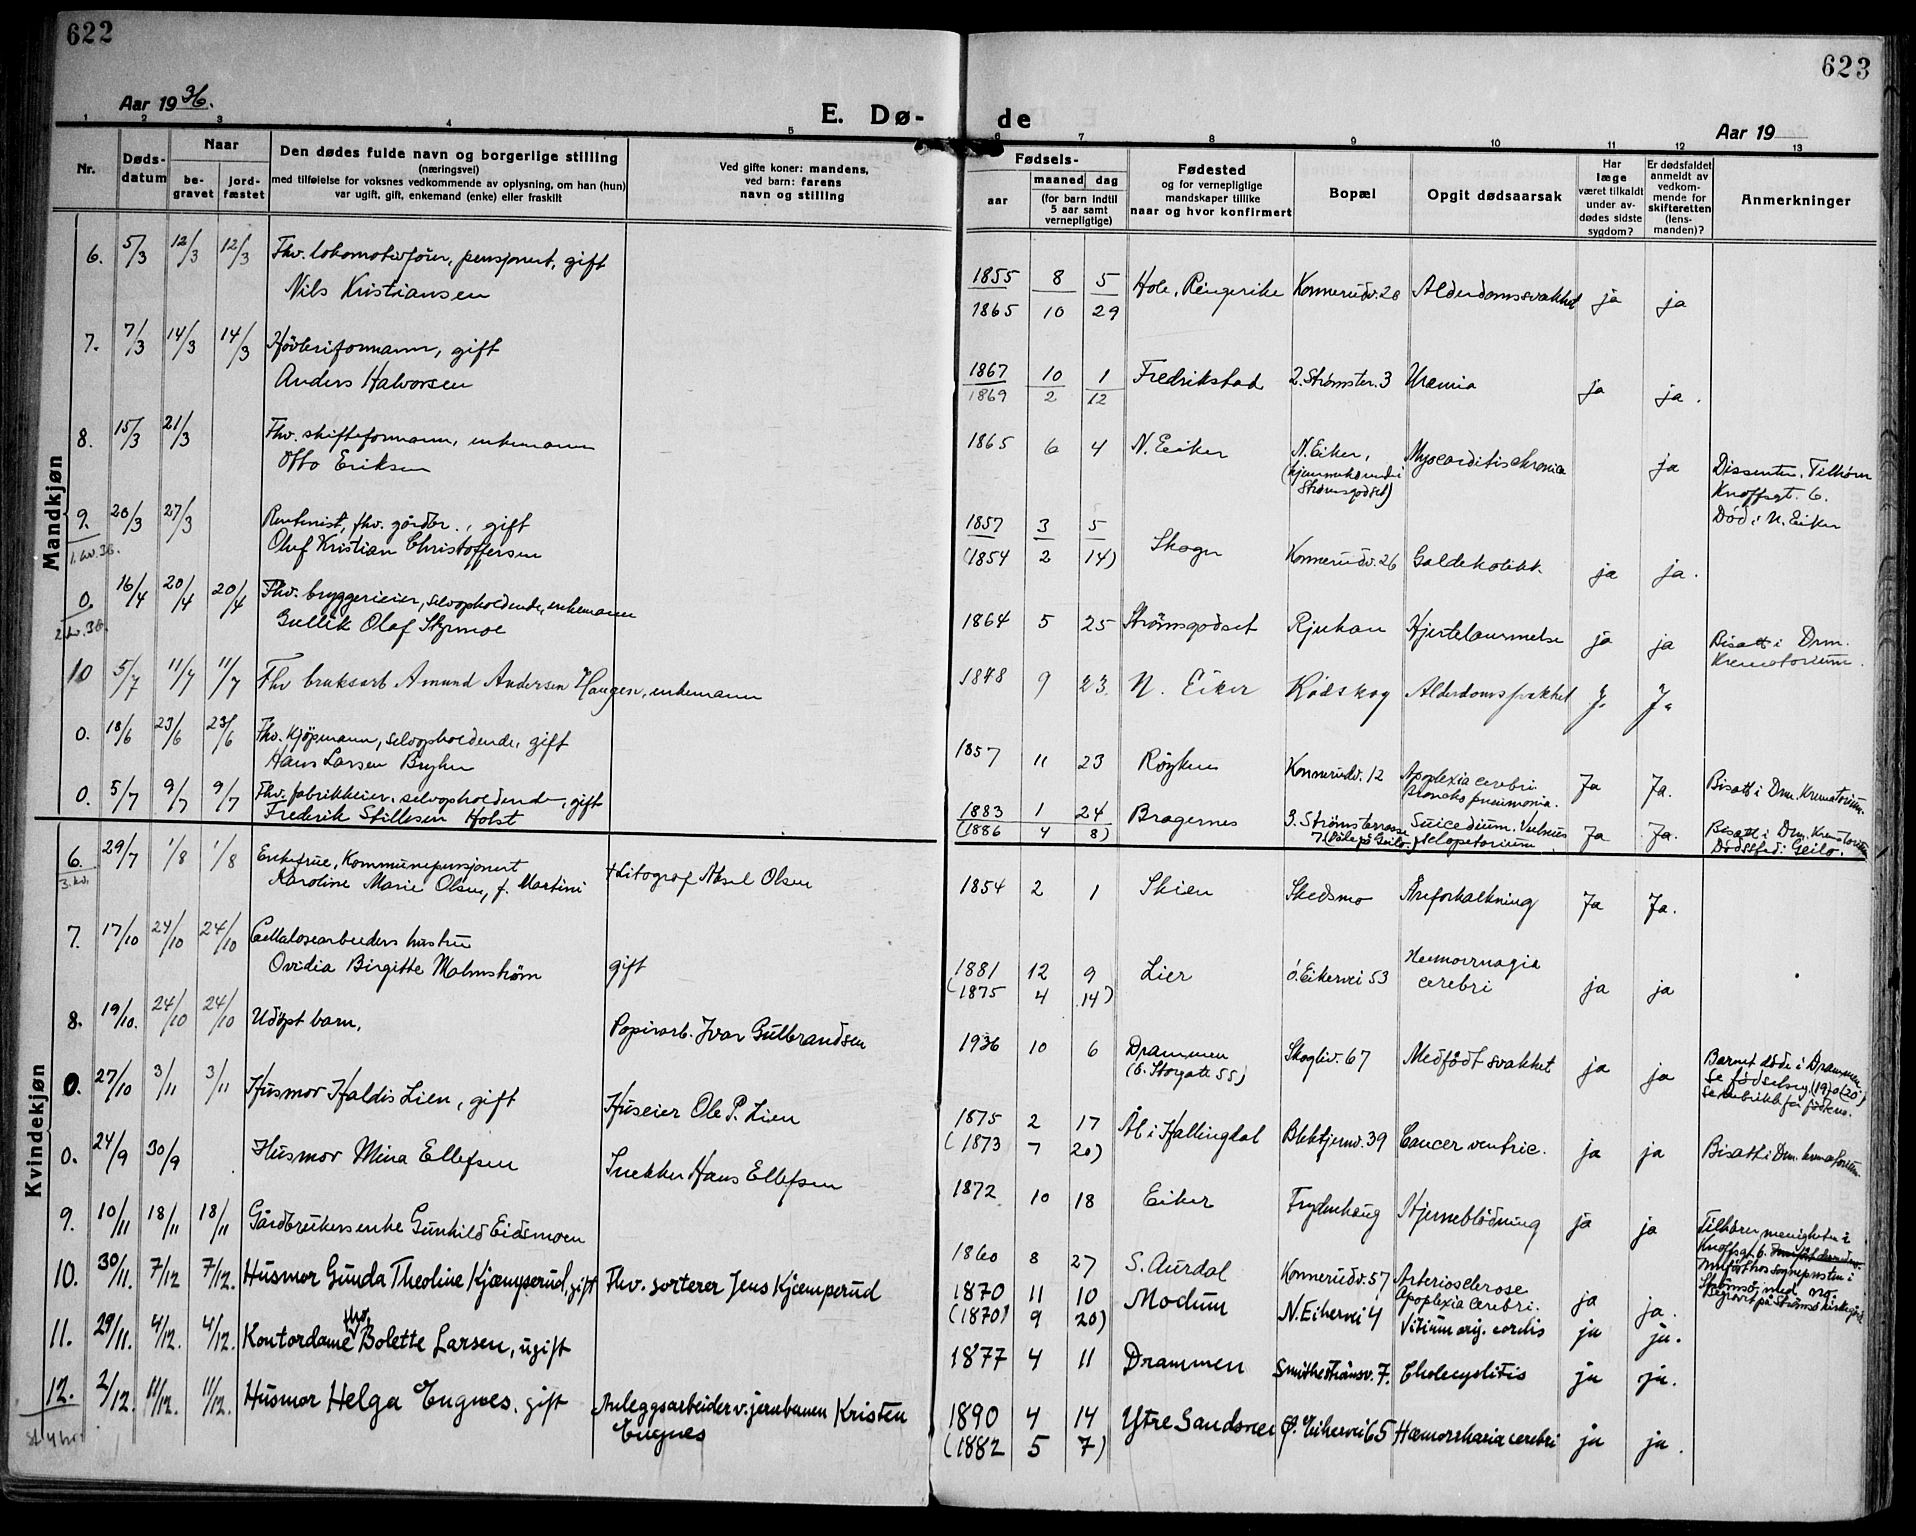 622
Aar 1936.
E. Dø-
1 2 3 4 5
Nr.
Døds-
datum
Naar
be-
gravet
jord-
fæstet
Den dødes fulde navn og borgerlige stilling
(næringsvei)
med tilføielse for voksnes vedkommende av oplysning, om han (hun)
var ugift, gift, enkemand (enke) eller fraskilt
Ved gifte koner: mandens,
ved barn: farens
navn og stilling
Mandkjøn
6. 5/3 12/3 12/3 Fhv. lokomotivfører, pensjonert, gift
Nils Kristiansen
7. 7/3 14/3 14/3 Høvleriformann, gift
Anders Halvorsen
8. 15/3 21/3 Fhv. skifteformann, enkemann
Otto Eriksen
9. 20/3 27/3 Rentenist, fhv. gårdbr., gift
1. kv. 36. Oluf Kristian Christoffersen
0. 16/4 20/4 20/4 Fhv. bryggerieier, selvopholdende, enkemann
2. kv. 36. Gullik Olaf
10 5/7 11/7 11/7 Fhv bruksarb Amund Andersen Haugen, enkemann
0. 18/6 23/6 23/6 Fhv. kjøpmann, selvopholdende, gift
Hans Larsen Bryhn
0. 5/7 9/7 9/7 Fhv. fabrikkeier, selvopholdende, gift
Frederik Stillesen Holst
Kvindekjøn
6. 29/7 1/8 1/8 Enkefrue, Kommunepensjonert
3. kv. Karoline Marie Olsen, f. Martini † Litograf Aksel Olsen
7. 17/10 24/10 24/10 Cellulosearbeiders hustru
Ovidia Birgitte Malmstrøm gift
8. 19/10. 24/10 24/10 Udøpt barn, Papirarb. Ivar Gulbrandsen
0. 27/10 3/11 3/11 Husmor Haldis Lien, gift Huseier Ole P. Lien
0. 24/9 30/9 Husmor Mina Ellefsen Snekker Hans Ellefsen
9. 10/11 18/11 18/11 Gårdbrukers enke Gunhild Eidsmoen
10. 30/11. 7/12 7/12. Husmor Gunda Theoline Kjæmperud, gift Fhv. sorterer Jens Kjæmperud
11. 29/11. 4/12. 4/12. Kontordame Bolette Larsen, ugift
12. 2/12. 11/12. 11/12. Husmor Helga Engnes, gift Anleggsarbeider v. jernbanen Kristen
Engnes
623
de
Aar 19
6 7 8 9 10 11 12 13
Fødsels-
aar
maaned
dag
(for barn indtil
5 aar samt
vernepligtige)
Fødested
og for vernepligtige
mandskaper tillike
naar og hvor konfirmert
Bopæl
Opgit dødsaarsak
Har
læge
været tilkaldt
under av-
dødes sidste
sygdom?
Er dødsfaldet
anmeldt av
vedkom-
mende for
skifteretten
(lens-
manden)?
Anmerkninger
1855 8 5 Hole, Ringerike Konnerudv. 28 Alderdomssvakhet ja ja
1865 10 29
1867 10 1 Fredrikstad 2. Strømster. 3 Uræmia ja ja.
1869 2 12
1865 6 4 N. Eiker N. Eiker, Myocarditis chronica ja Dissenter. Tilhører
(hjemmehørende i Knoffsgt. 6.
Strømsgodset) Død i N. Eiker
1857 3 5 Skoger Konnerudv. 26 Galdekolikk ja ja.
(1854 2 14)
1864 5 25 Strømsgodset Rjukan Hjertelammelse ja ja Bisatt i Drm.
Krematorium.
1848 9 23 N. Eiker Rødskog Alderdomssvakhet J. J.
1857 11 23 Røyken Konnerudv. 12 Apoplexia cerebri Ja Ja. Bisatt i Drm. Krematorium.
Broncho pneumonia.
1883 1 24 Bragernes 3. Strømsterrasse Suicedium. Vulnus Ja Ja. Bisatt i Drm. Krematorium
(1886 4 8) 7 sclopetorium Dødssted: Geilo.
1854 2 1 Skien Skedsmo Åreforkalkning Ja Ja.
1881 12 9 Lier ö. Eikervei 53 Hæmorrhagia ja ja
(1875 4 14) cerebri
1936 10 6 Drammen Skogliv. 67 Medfødt svakhet ja ja Barnet døde i Drammen.
(ö. Storgate 55)
1875 2 17 Ål i Hallingdal Blektjernv. 39 Cancer ventric. ja ja Bisatt i Drm. krematorium.
(1873 7 20)
1872 10 18 Eiker Frydenhaug Hjerneblødning ja ja Tilhører menigheten i
Knoffsgt. 6.
1860 8 27 S. Aurdal Konnerudv. 57 Arteriosclerose ja ja. Innført hos sognepresten i
Apoplexia cerebri. Strømsø med no.
Begravet på Strømsø kirkegård
1870 11 10 Modum N. Eikervei 4 Vitium org. cordis ja ja.
(1870 9 20)
1877 4 11 Drammen 7. Cholecystitis ja ja.
1890 4 14 Ytre Sandsvær Ø. Eikervei 65 Hæmorrharia cerebri ja ja.
(1882 5 7)